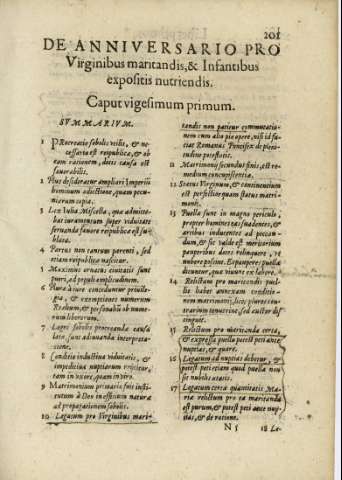 201
DE ANNIVERSARIO PRO
Virginibus maritandis, & Infantibus
expositis nutriendis.
Caput vigesimum primum.
SVMMARIVM.
1 PRocreatio sobolis vtilis, & ne-
cessaria est reipublicæ, & ob
eam rationem, dotis causa est
fauorabilis.
2 Plus desideratur ampliari Imperiũ
hominum adiectione, quam pecu-
niarum copia.
3 Lex Iulia Miscella, quæ admitte-
bat iuramentum super viduitate
seruanda fauore reipublicæ est su-
blata.
4 Partus non tantum parenti, sed
etiam reipublicæ nascitur.
5 Maximus ornatus ciuitatis sunt
pueri, ad populi multitudinem.
6 Plura à iure conceduntur priuile-
gia, & exemptiones numerum
Realium, & personaliũ ob nume-
rum liberorum.
7 Leges sobolis procreandæ causa
latæ, sunt adiuuandæ interpreta-
tione.
8 Conditio inductiua viduitatis, &
impeditiua nuptiarum reijcitur,
tam in vxore, quam in viro.
9 Matrimonium primæ fuit insti-
tutum à Deo in essentiam naturæ
ad propagationem sobolis.
10 Legatum pro Virginibus mari-
tandis non patitur commutatio-
nem cum alio pio opere, nisi id fa-
ciat Romanus Pontifex de pleni-
tudine potestatis.
11 Matrimonij secundus finis, est re-
medium concupiscentiæ.
12 Status Virginum, & continentium
est perfectior quam status matri-
monij.
13 Puellæ sunt in magno periculo,
propter humanas suadentes, &
artibus inducentes ad peccan-
dum, & sic valde est meritorium
pauperibus dotes relinquere, vt
nubere possint. Et pauperes puellæ
dicuntur, quæ viuunt ex labore.
14 Relictum pro maritandis puel-
lis habet annexam conditio-
nem matrimonij,
15 Relictum pro maritanda certa,
& expressa puella potest peti ante
nuptias, & quare.
16 Legatum ad nuptias debetur, &
potest peti etiam quod puella non
sit nubilis ætatis.
17 Legatum certæ quantitatis Ma-
riæ relictum pro ea maritanda
est purum, & potest peti ante nup-
tias, & de ratione.
N 5 18 Le-